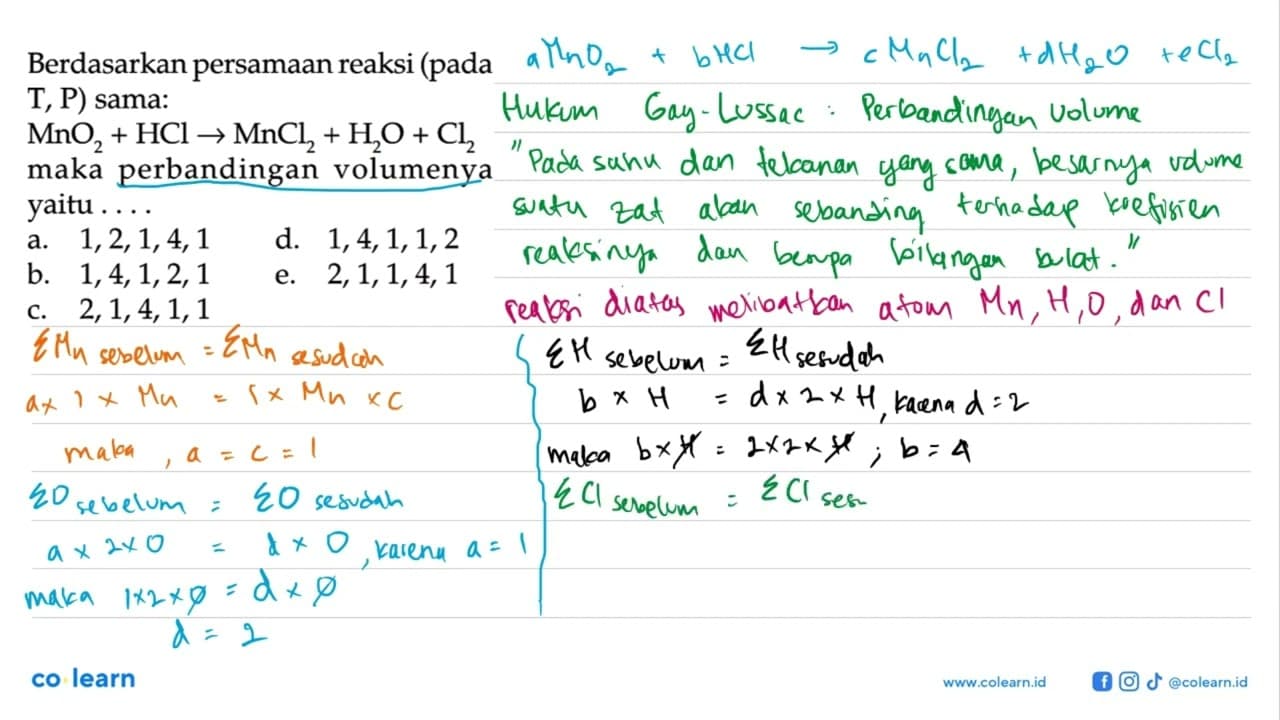 Berdasarkan persamaan reaksi (pada
T, P) sama:
MnO₂ + HCl → MnCl₂ + H₂O + Cl₂
maka perbandingan volumenya
yaitu . . . .
a. 1, 2, 1, 4, 1 d. 1, 4, 1, 1, 2
b. 1, 4, 1, 2, 1 e. 2, 1, 1, 4, 1
c. 2, 1, 4, 1, 1
aMnO₂ + bHCl → cMnCl₂ + dH₂O + eCl₂
Hukum Gay-Lussac : Perbandingan volume
"Pada suhu dan tekanan yang sama, besarnya volume
suatu zat akan sebanding terhadap koefisien
reaksinya dan berupa bilangan bulat."
reaksi diatas melibatkan atom Mn, H, O, dan Cl
ΣMn sebelum = ΣMn sesudah
a x 1 x Mn = 1 x Mn x c
maka, a = c = 1
ΣO sebelum = ΣO sesudah
a x 2 x O = d x O, karena a = 1
maka 1 x 2 x O = d x O
d = 2
ΣH sebelum = ΣH sesudah
b x H = d x 2 x H, karena d = 2
maka b x H = 2 x 2 x H ; b = 4
ΣCl sebelum = ΣCl ses
co learn
www.colearn.id
@colearn.id